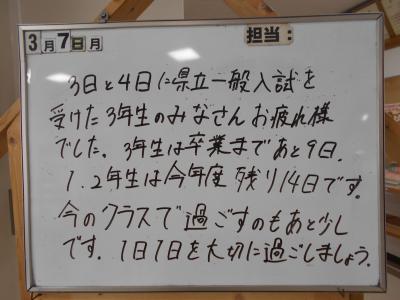 3月7日月 担当：
3日と4日に県立一般入試を
受けた3年生のみなさんお疲れ様
でした。3年生は卒業まであと9日.
1.2年生は今年度残り14日です。
今のクラスで過ごすのもあと少し
です。1日1日を大切に過ごしましょう。